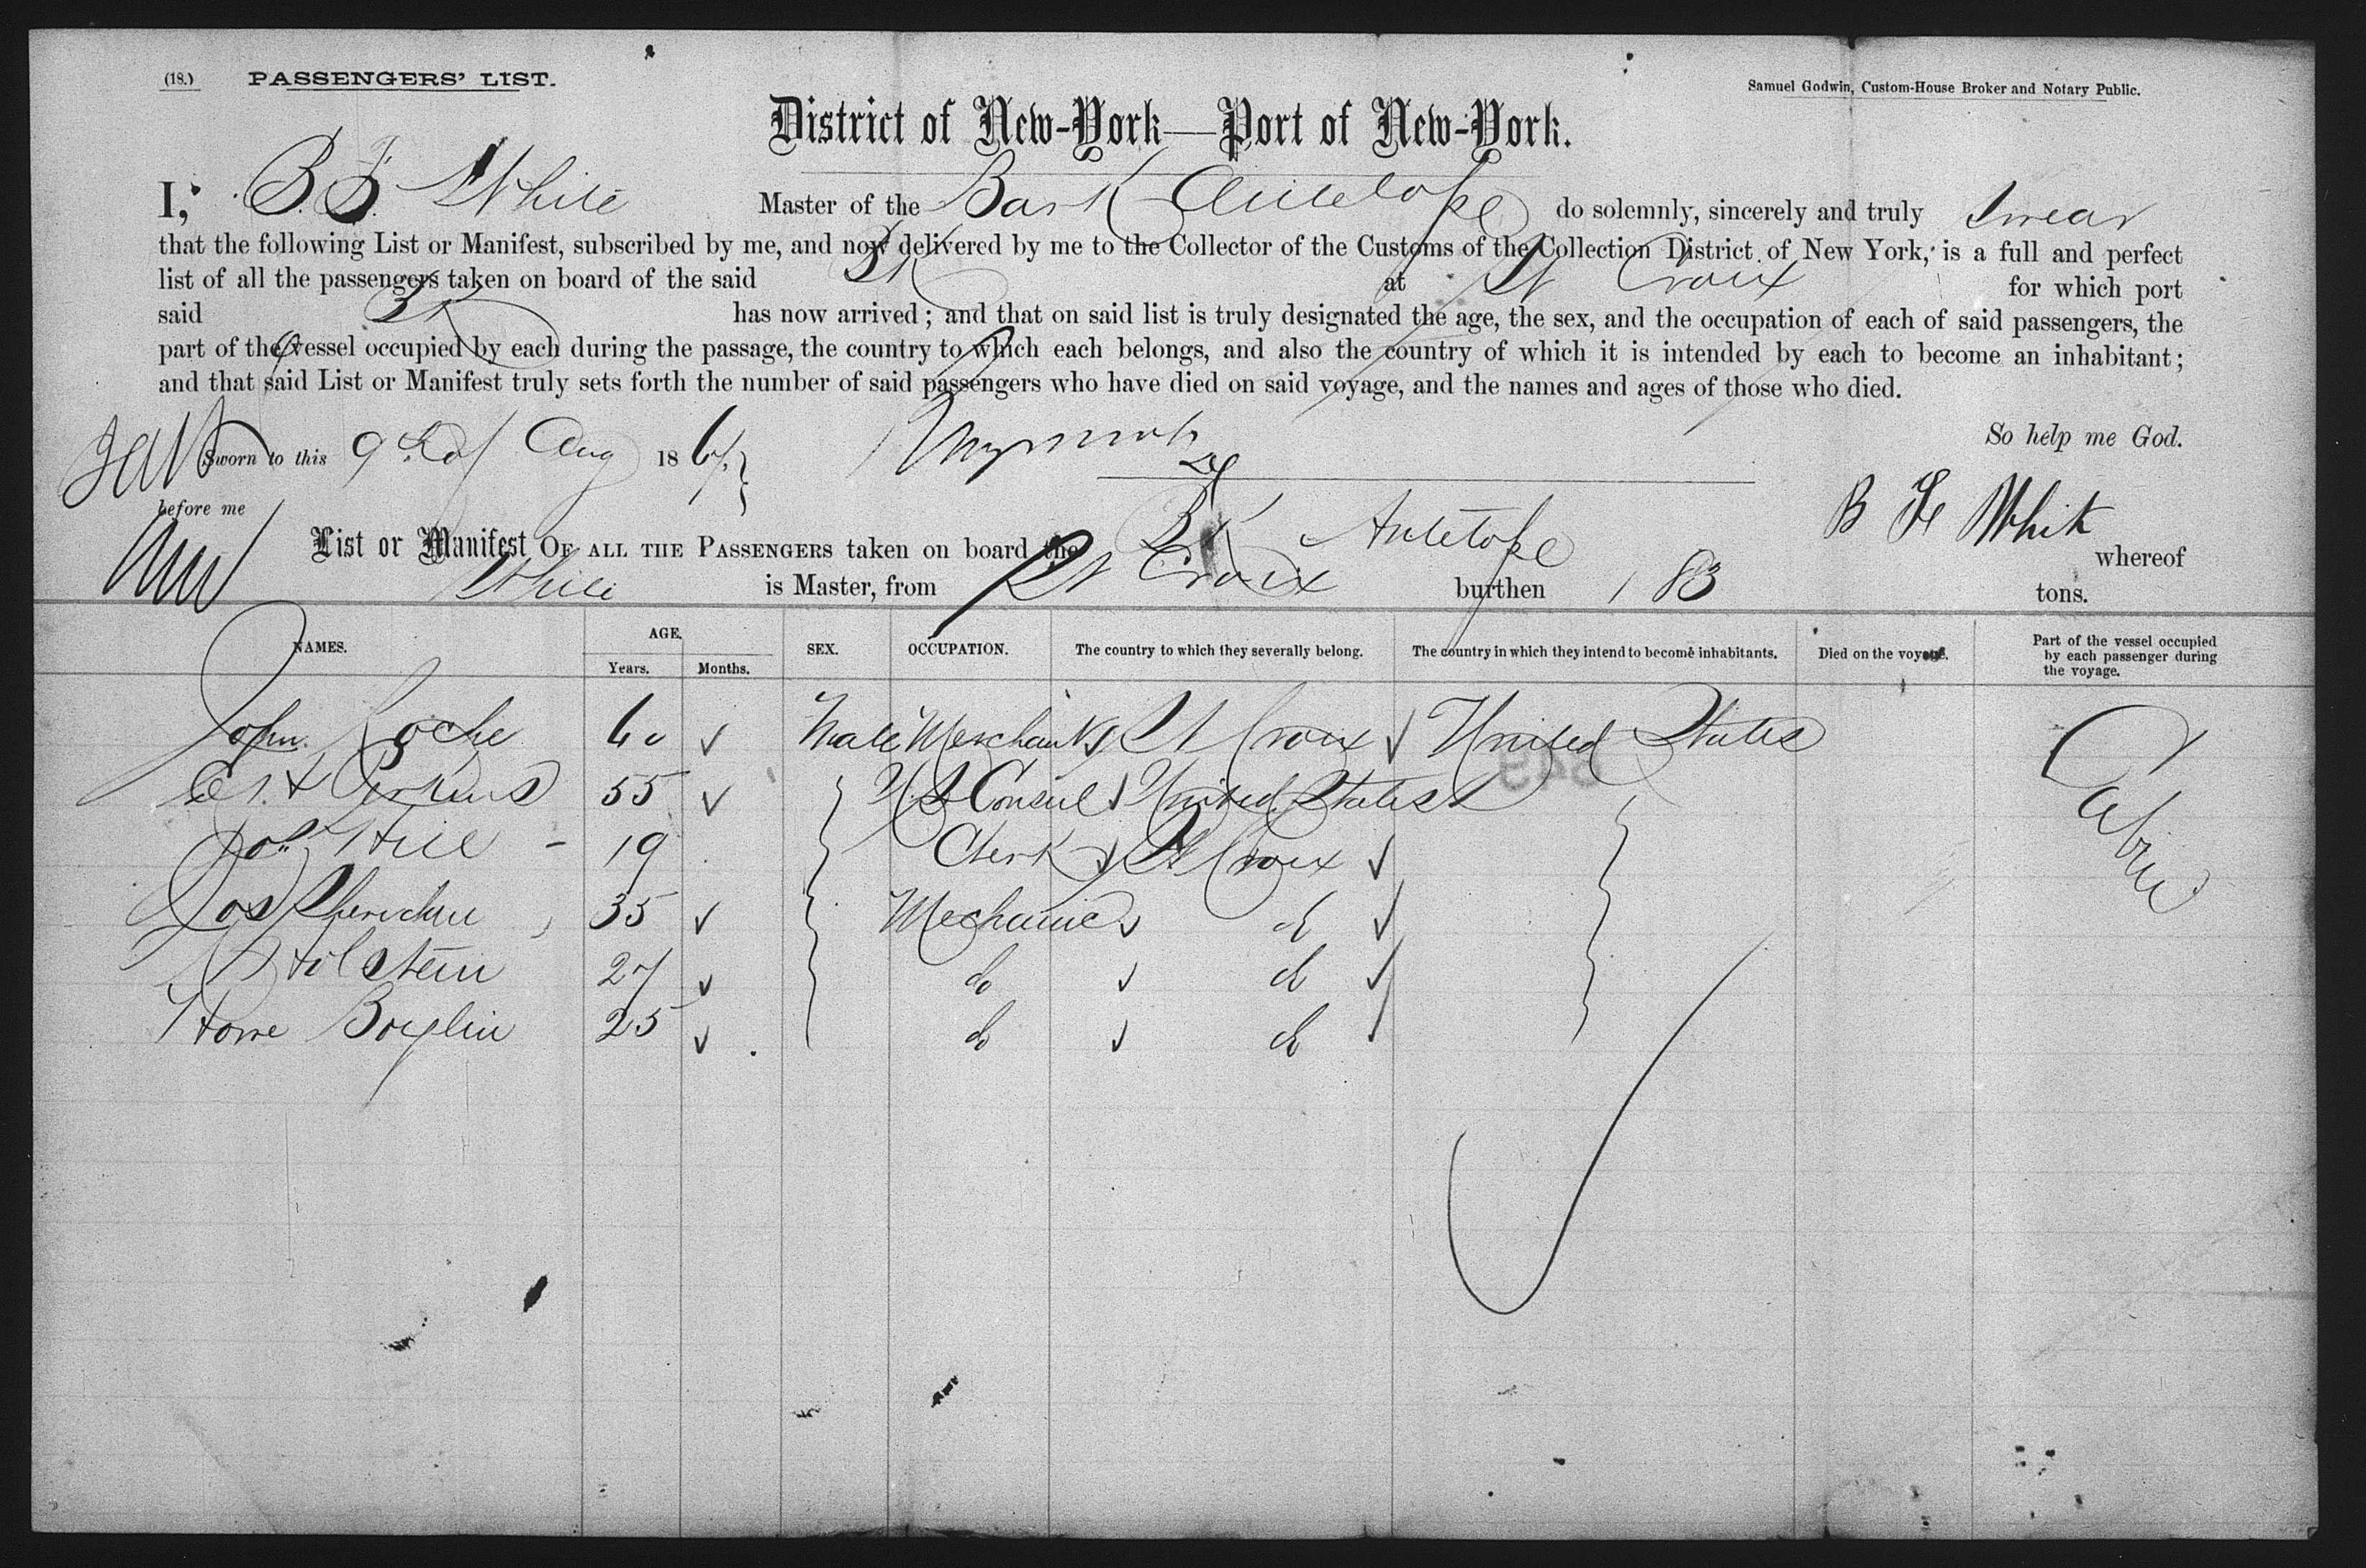 (18.) PASSENGERS' LIST.
Samuel Godwin, Custom-House Broker and Notary Public.
District of New-York—Port of New-York.
I, B. F. White Master of the Bark Antelope do solemnly, sincerely and truly swear
that the following List or Manifest, subscribed by me, and now delivered by me to the Collector of the Customs of the Collection District of New York, is a full and perfect
list of all the passengers taken on board of the said Bk at St Croix for which port
said Bk has now arrived; and that on said list is truly designated the age, the sex, and the occupation of each of said passengers, the
part of the vessel occupied by each during the passage, the country to which each belongs, and also the country of which it is intended by each to become an inhabitant;
and that said List or Manifest truly sets forth the number of said passengers who have died on said voyage, and the names and ages of those who died.
So help me God.
Sworn to this 9th of Aug 1867
before me
B F White
List or Manifest OF ALL THE PASSENGERS taken on board the Bk Antelope whereof
White is Master, from St Croix burthen 183 tons.
NAMES. AGE. Years. Months. SEX. OCCUPATION. The country to which they severally belong. The country in which they intend to become inhabitants. Died on the voyage. Part of the vessel occupied by each passenger during the voyage.
John Roche 60 Male Merchant St Croix United States Cabin
Perkins 55 U.S Consul United States
Hill - 19 Clerk St Croix
Jos 35 Mechanic do
Holstein 27 do do
25 do do